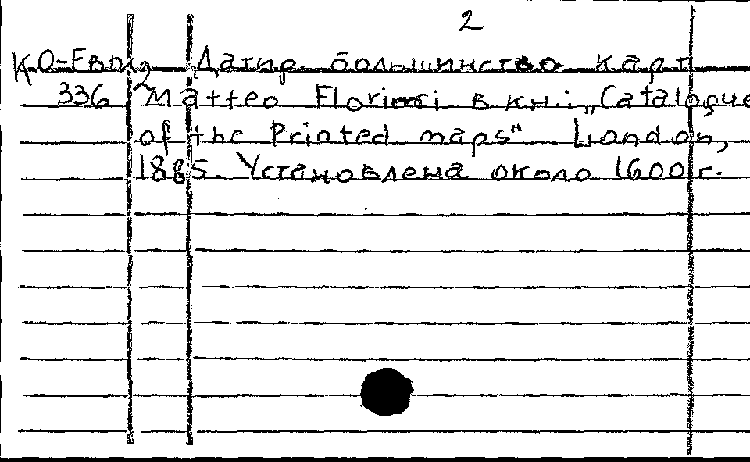 2
КО-Евр/2 Датир. большинство карт
336 Matteo Florimi в кн.: „Catalogue
of the Printed maps" London,
1885. Установлена около 1600 г.